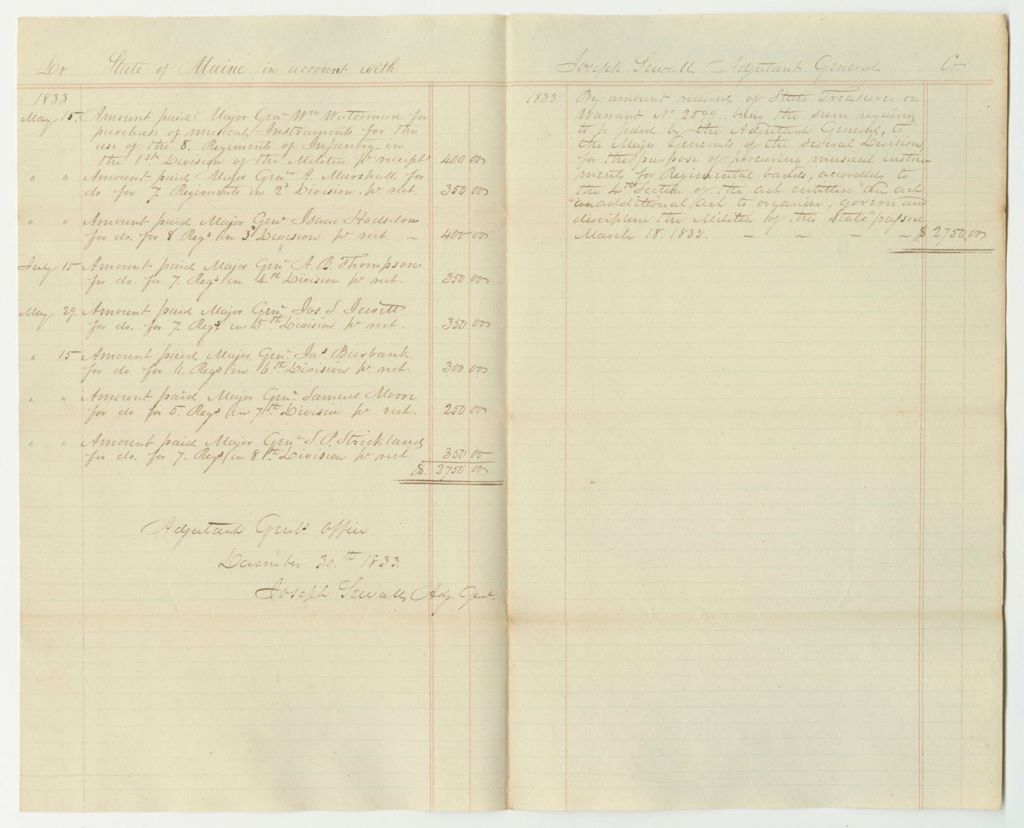 Dr State of Maine in account with
1833
May 15. Amount paid Major Genl Wm Waterman for
purchase of musical Instruments for the
use of the 8. Regiments of Infantry in
the 1st Division of the Militia pr receipt 400 00
" " Amount paid Major Genl A. Marshall for
do for 7. Regiments in 2d Division pr rect. 350 00
" " Amount paid Major Genl Isaac Hodsdon
for do. for 8 Regs in 3d Division pr rect - 400 00
July 15 Amount paid Major Genl A. B. Thompson
for do. for 7. Regs in 4th Division pr rect. 350 00
May 29. Amount paid Major Genl Jos. S. Jewett
for do. for 7. Regs in 5th Division pr rect. 350 00
" 15 Amount paid Major Genl Jas Burbank
for do. for Regs in 6th Division pr rect. 300 00
" " Amount paid Major Genl Samuel Moor
for do for 5. Regs in 7th Division pr rect. 250 00
" " Amount paid Major Genl S. P. Strickland
for do. for 7. Regs in 8th Division pr rect 350 00
$. 2750 00
Adjutant Genls Office
December 30.th 1833.
Joseph Sewall, Adj Genl.
Joseph Sewall Adjutant General Cr
1833 By amount received of State Treasurer on
Warrant No 2599. being the sum required
to be paid by the Adjutant General, to
the Major Generals of the several Divisions
for the purpose of procuring musical instru
ments for Regimental bands, according to
the 4th Section of the act entitled "An act
an additional act to organize, govern and
discipline the Militia of this State" passed
March 18. 1833. - - - - $ 2750,00